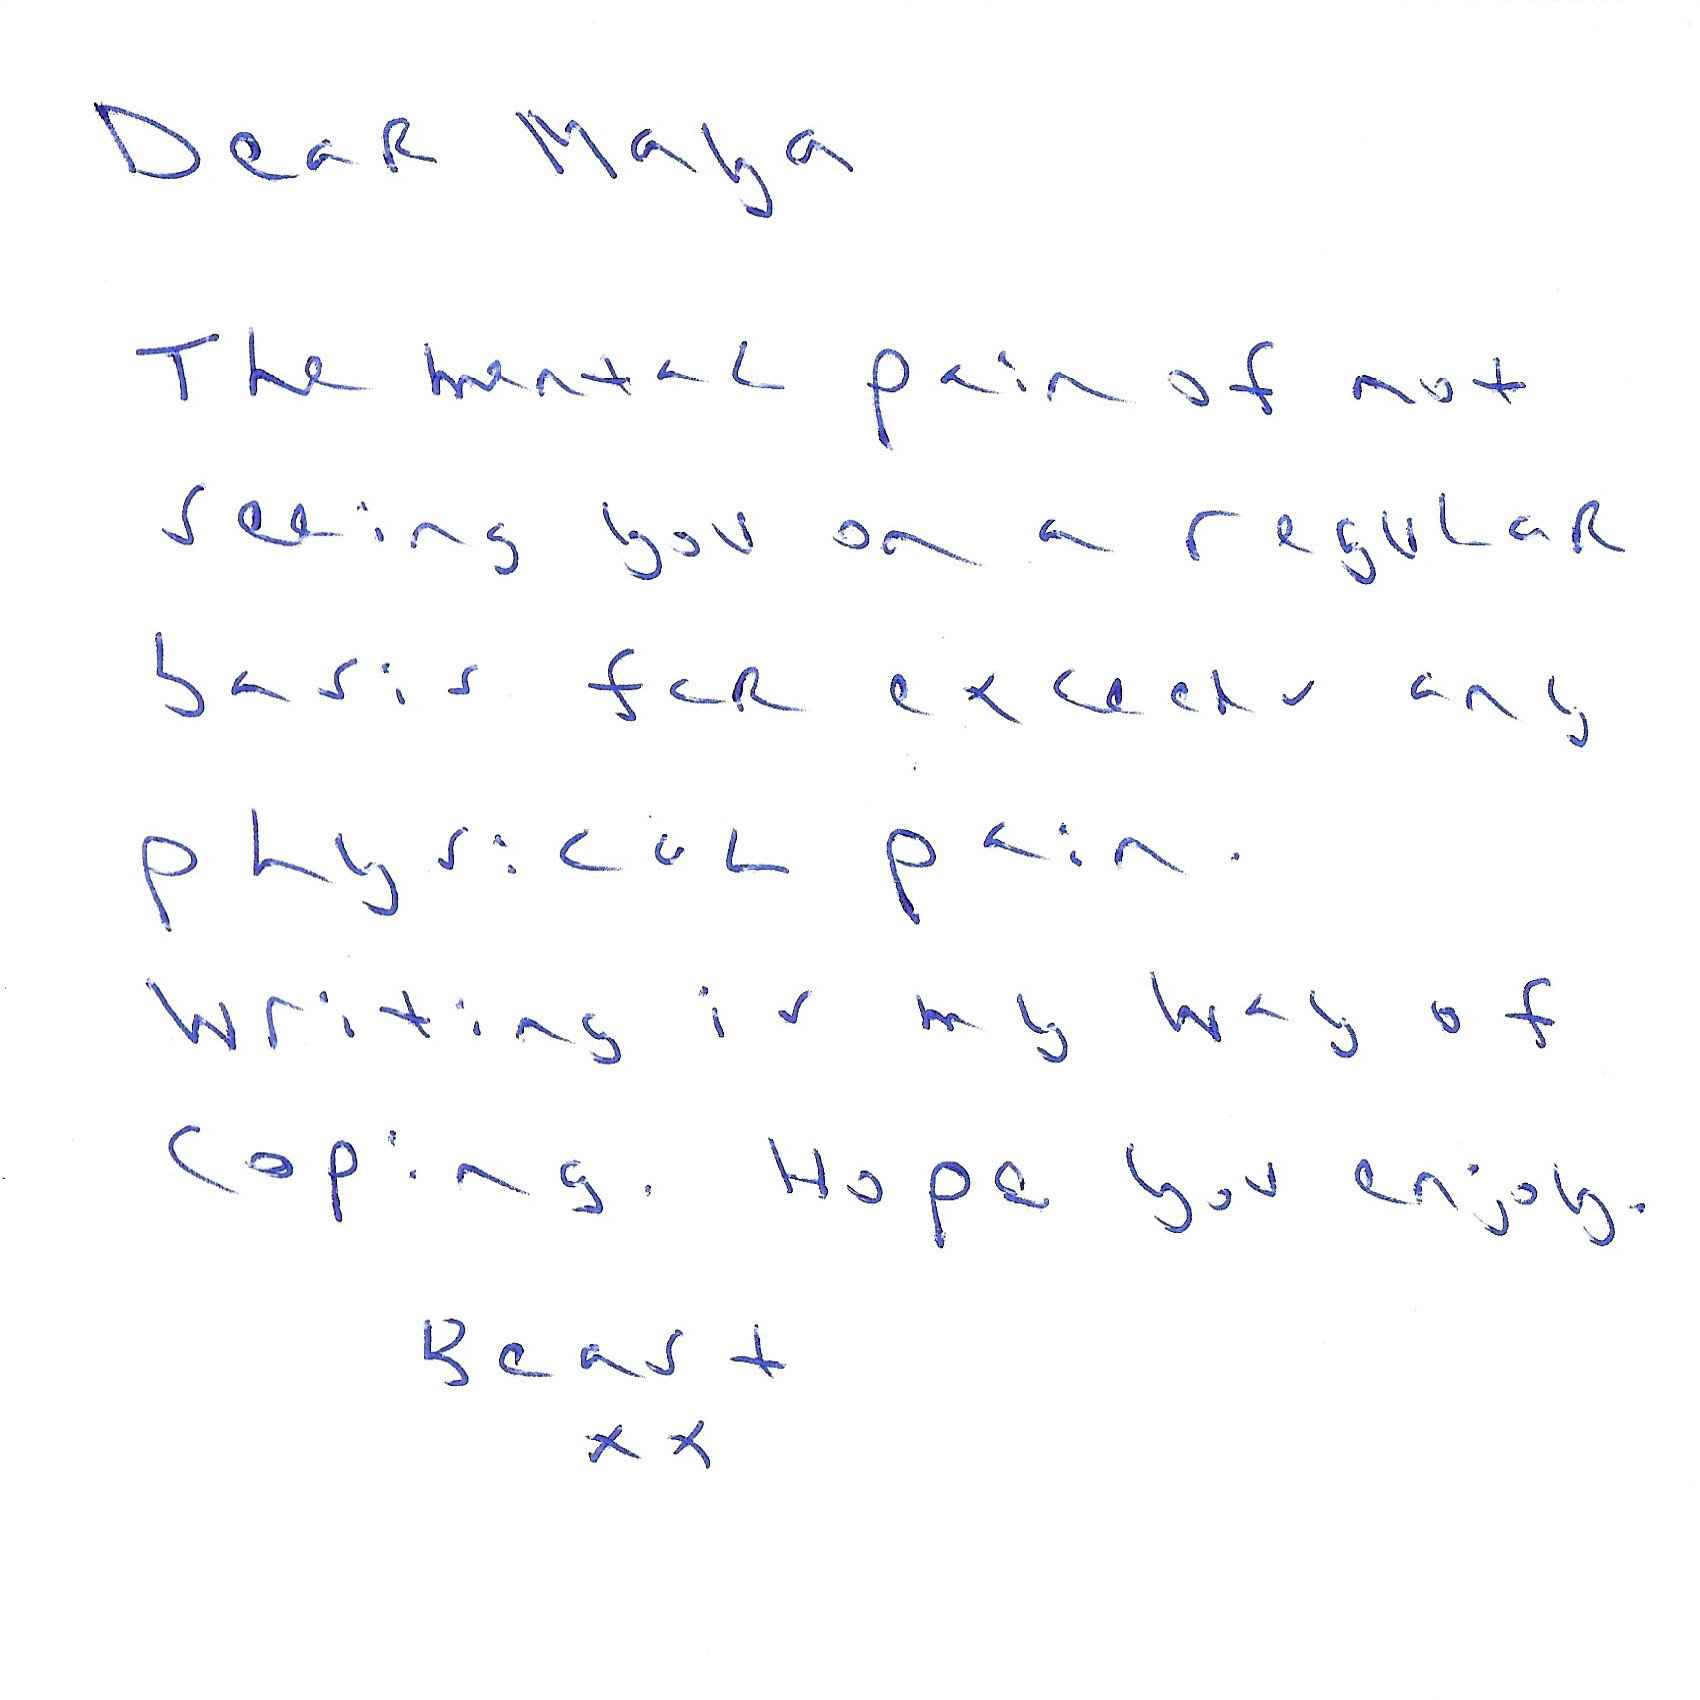 Dear Maya
The mental pain of not
seeing you on a regular
basis far exceeds any
physical pain.
Writing is my way of
Coping. Hope you enjoy.
Beast
xx